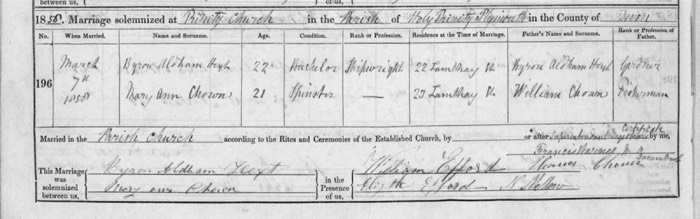 between us,
1858. Marriage solemnized at Trinity Church in the Parish of Holy Trinity Plymouth in the County of Devon
No. When Married. Name and Surname. Age. Condition. Rank or Profession. Residence at the Time of Marriage. Father's Name and Surname. Rank or Profession of Father.
196 March 7th 1858 Byron Aldham Hext 22 Bachelor Shipwright 22 Lambhay St Byron Aldham Hext Gardner
Mary Ann Chown 21 Spinster — 23 Lambhay St William Chown Fisherman
Married in the Parish Church according to the Rites and Ceremonies of the Established Church, by or after Superintendent Registrars Certificate by me,
Francis Incumbent
This Marriage was solemnized between us, Byron Aldham Hext
Mary Ann Chown
in the Presence of us, William Efford Thomas Chown
Efford N